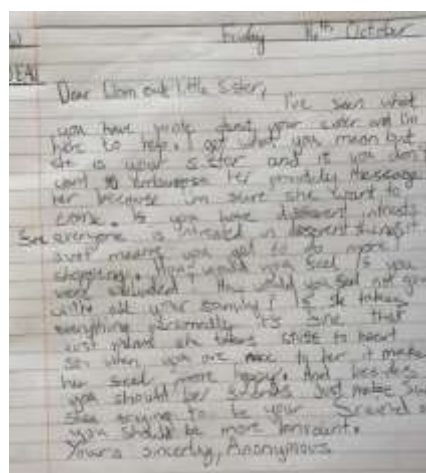 Friday 14th October
Dear Worn out little Sister,
I've seen what
you have wrote about your sister and I'm
here to help. I get what you mean but
she is your sister and if you don't
want to embarress her privately message
her because im sure she want to
come. If you have different intrests
See everyone is intrested in different things it
just means you get to do more
shopping. How would you feel if you
were excluded? How would you feel not going
with all your family? If she takes
everything personally its fine that
just means she takes stuff to heart
so when you are nice to her it makes
her feel more happy. And besides
you should her friends just make sure
shes trying to be your friend
you should be more
Yours sincerly, Anonymous